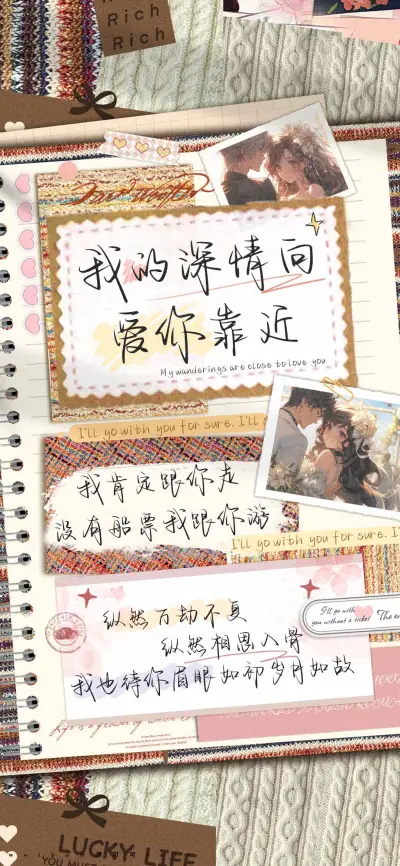 Rich
Rich
我的深情向
爱你靠近
My wanderings are close to love you
I'll go with you for sure. I'll g
我肯定跟你走
没有船票我跟你游
I'll go with you for sure.
纵然万劫不复
纵然相思入骨
我也待你眉眼如初岁月如故
I'll go with
you without a ticket
The en
Life is a flower of which lo
LUCKY LIFE
YOU MUST